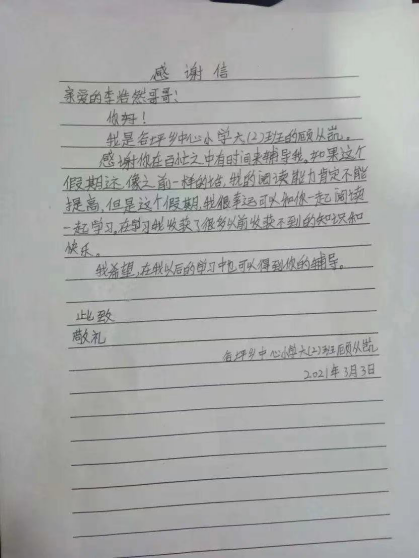 感谢信
亲爱的李浩然哥哥：
你好！
我是台坪乡中心小学六(2)班的顾从凯。
感谢你在百忙之中有时间来辅导我。如果这个
假期还像之前一样的话，我的阅读能力肯定不能
提高，但是这个假期，我很幸运可以和你一起阅读
一起学习。在学习我收获了很多以前收获不到的知识和
快乐。
我希望，在我以后的学习中也可以得到你的辅导。
此致
敬礼
台坪乡中心小学六(2)班顾从凯
2021年3月3日